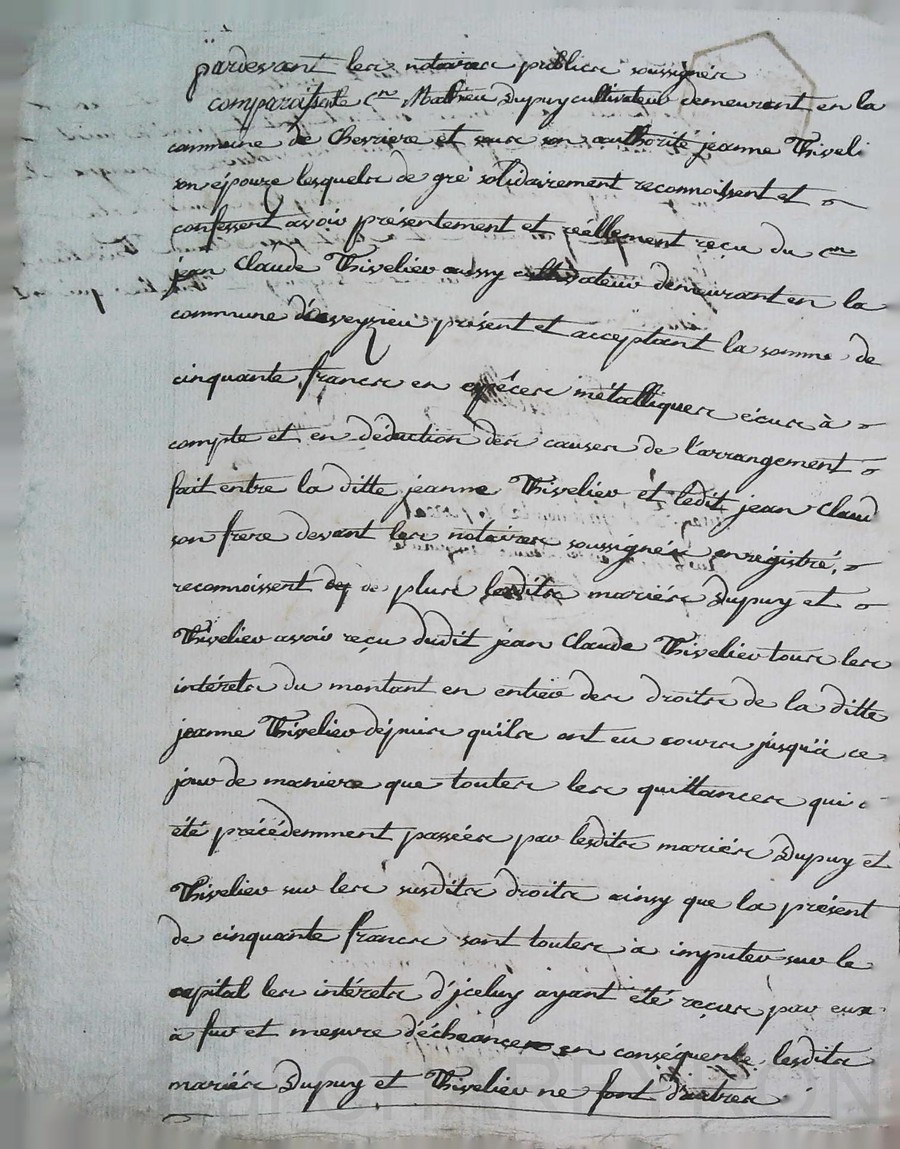 pardevant les notaires publics soussignés
comparaissent cen Mathieu Dupuy cultivateur demeurant en la
commune de Chevriere et sous son authorité jeanne Thiveli
son épouze lesquels de gré solidairement reconnoissent et
confessent avoir présentement et réellement reçu du cen
jean Claude Thivelier aussy cultivateur demeurant en la
commune d'aveyzieu présent et acceptant la somme de
cinquante francs en espéces métalliques écus à
compte et en déduction des causes de l'arrangement
fait entre la ditte jeanne Thivelier et ledit jean Claud
son frere devant les notaires soussignés enrégistré,
reconnoissent de plus lesdits mariés Dupuy et
Thivelier avoir reçu dudit jean Claude Thivelier tous les
intérets du montant en entier des droits de la ditte
jeanne Thivelier dépuis qu'ils ont eu cours jusqu'à ce
jour de maniere que toutes les quittances qui
été précédemment passées par lesdits mariés Dupuy et
Thivelier sur les susdits droits ainsy que la présent
de cinquante francs sont toutes à imputer sur le
capital les intérets d'jceluy ayant été recus par eux
à fur et mesure d'écheances en conséquence lesdits
mariés Dupuy et Thivelier ne font d'autres